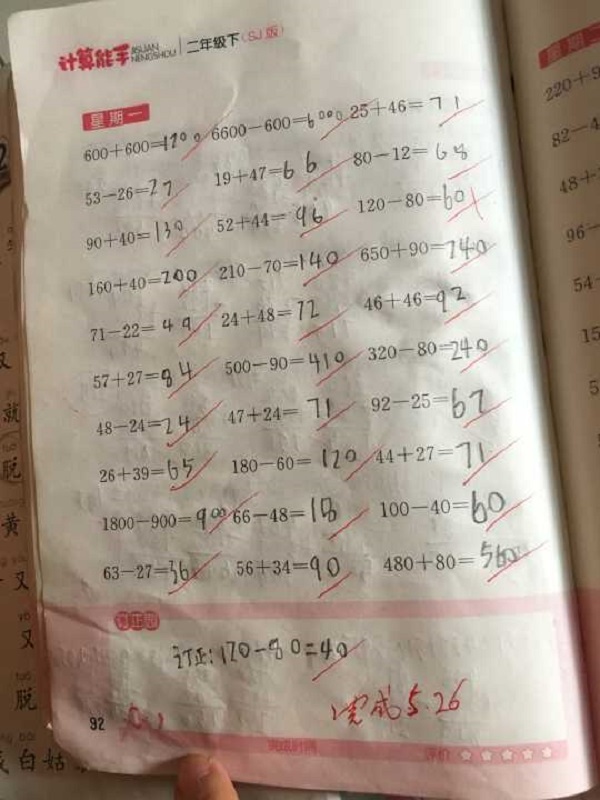 计算能手 JISUAN NENGSHOU 二年级下(SJ版)
星期一
600+600=1200 6600-600=6000 25+46=71
53-26=27 19+47=66 80-12=68
90+40=130 52+44=96 120-80=60
160+40=200 210-70=140 650+90=740
71-22=49 24+48=72 46+46=92
57+27=84 500-90=410 320-80=240
48-24=24 47+24=71 92-25=67
26+39=65 180-60=120 44+27=71
1800-900=900 66-48=18 100-40=60
63-27=36 56+34=90 480+80=560
订正园
订正:120-80=40
完成5.26
92
完成时间 评价
220+9
82-4
48+
96-
54-
15
5
又
就
脱
黄
又
又
脱
白姑